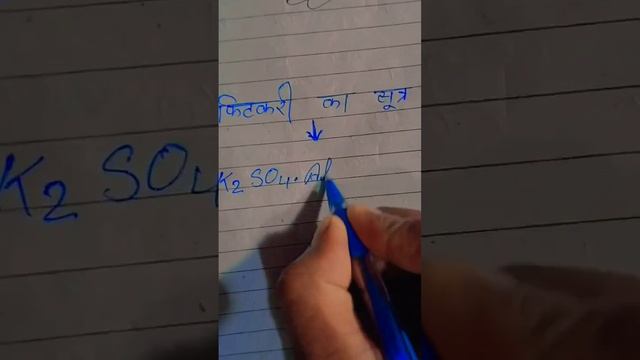 फिटकरी का सूत्र
↓
K₂SO₄.Al